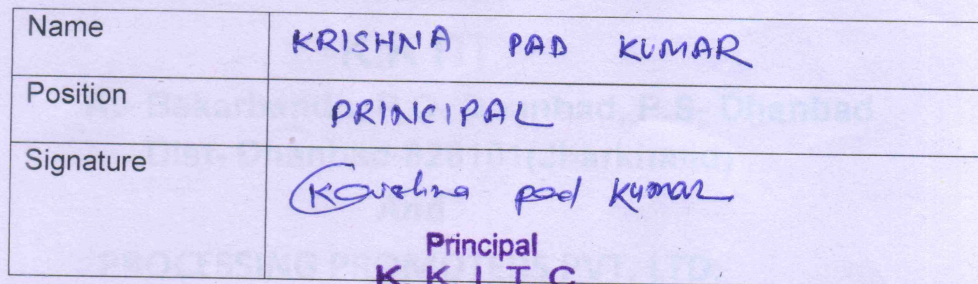 Name KRISHNA PAD KUMAR
Position PRINCIPAL
Signature Krishna pad Kumar
Principal
K K I T C